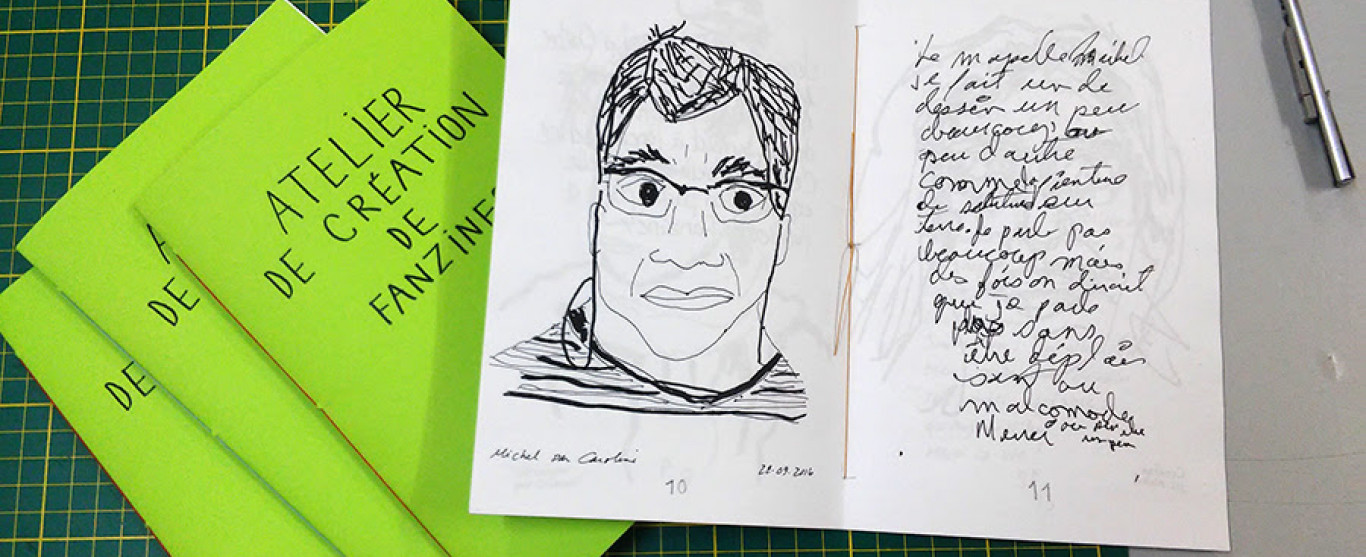 ATELIER
DE CRÉATION
DE
FANZINES
A
DE
DE
Michel par Caroline
20.09.2016
10
Je mapelle Michel
je fait un de
dessin un peu
beaucoup
peu d'autre
comme
de sur
terre. Je parle pas
beaucoup mais
des fois on dirait
que je parle
pas sans
être déplai
sant ou
malcomode
Merci
un peu
11